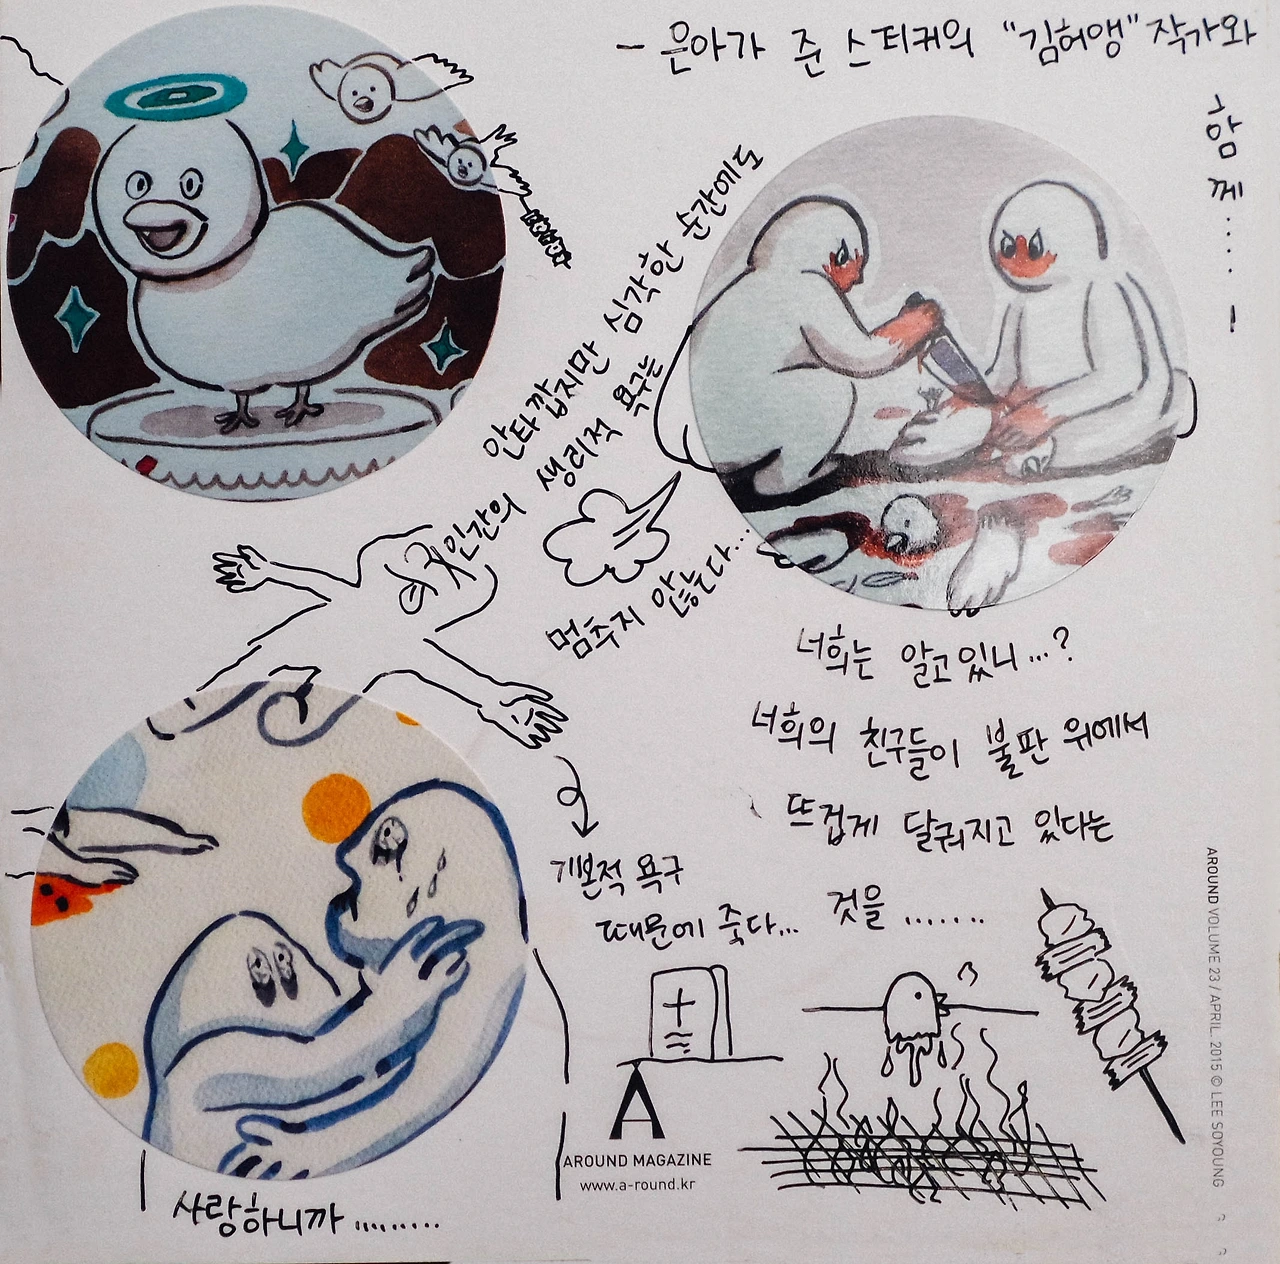 - 은아가 준 스티커의 "김허앵" 작가와
함께.... !
안타깝지만 심각한 순간에도
인간의 생리적 욕구는
멈추지 않는다...
너희는 알고 있니...?
너희의 친구들이 불판 위에서
뜨겁게 달궈지고 있다는
것을 .......
기본적 욕구
때문에 죽다...
A
AROUND MAGAZINE
www.a-round.kr
사랑하니까 .........
AROUND VOLUME 23 / APRIL. 2015 © LEE SOYOUNG